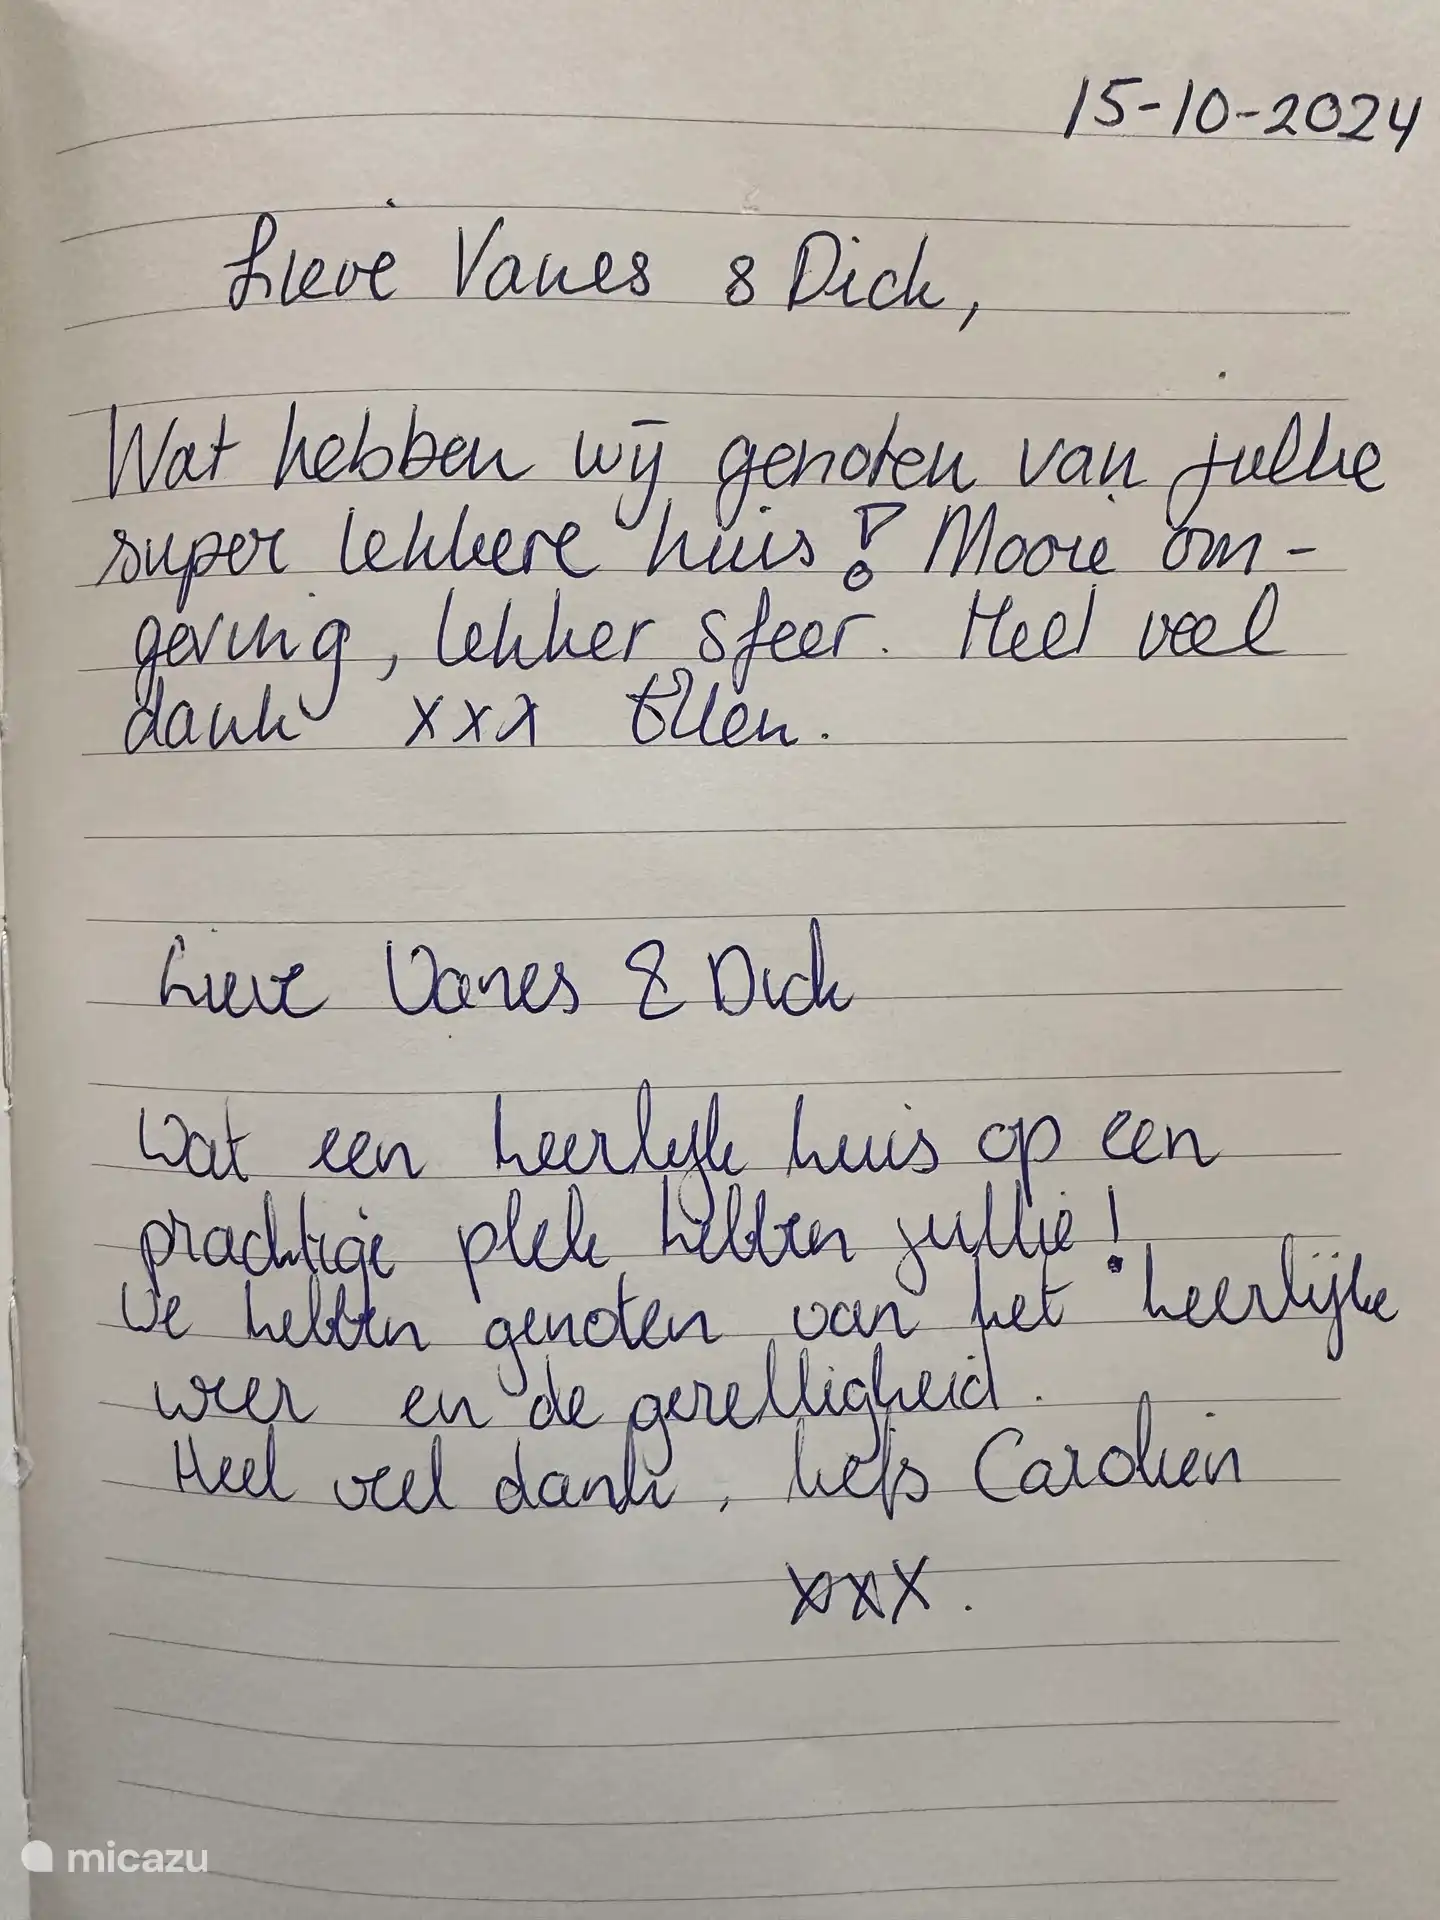 15-10-2024
Lieve Vanes & Dick,
Wat hebben wij genoten van jullie
super lekkere huis! Mooie om-
geving, lekker sfeer. Heel veel
dank xxx Ellen.
Lieve Vanes & Dick
Wat een heerlijk huis op een
prachtige plek hebben jullie!
We hebben genoten van het heerlijke
weer en de gezelligheid.
Heel veel dank, liefs Carolien
xxx.
micazu